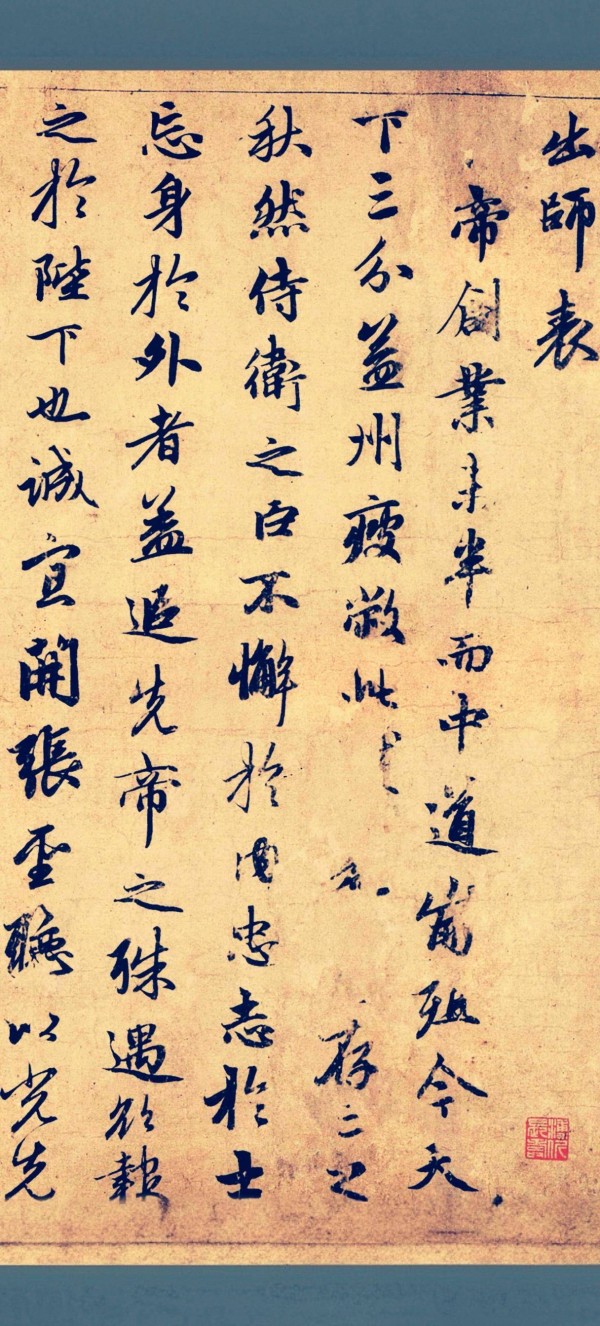 出師表
帝創業未半而中道崩殂今天
下三分益州疲敝此存之
秋然侍衛之臣不懈於内忠志於士
忘身於外者益追先帝之殊遇欲報
之於陛下也誠宜開張聖聽以光先